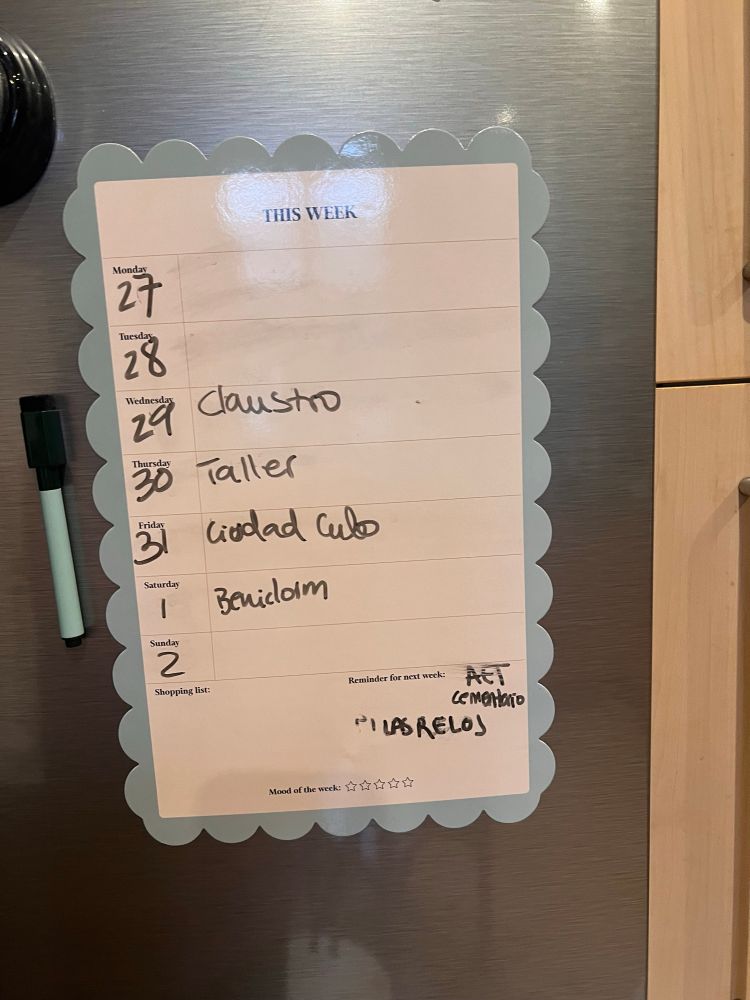 THIS WEEK
Monday
27
Tuesday
28
Wednesday
29 Claustro
Thursday
30 Taller
Friday
31 Ciudad Cubo
Saturday
1 Benidorm
Sunday
2
Shopping list:
Reminder for next week: AET
cementerio
PILAS RELOJ
Mood of the week: